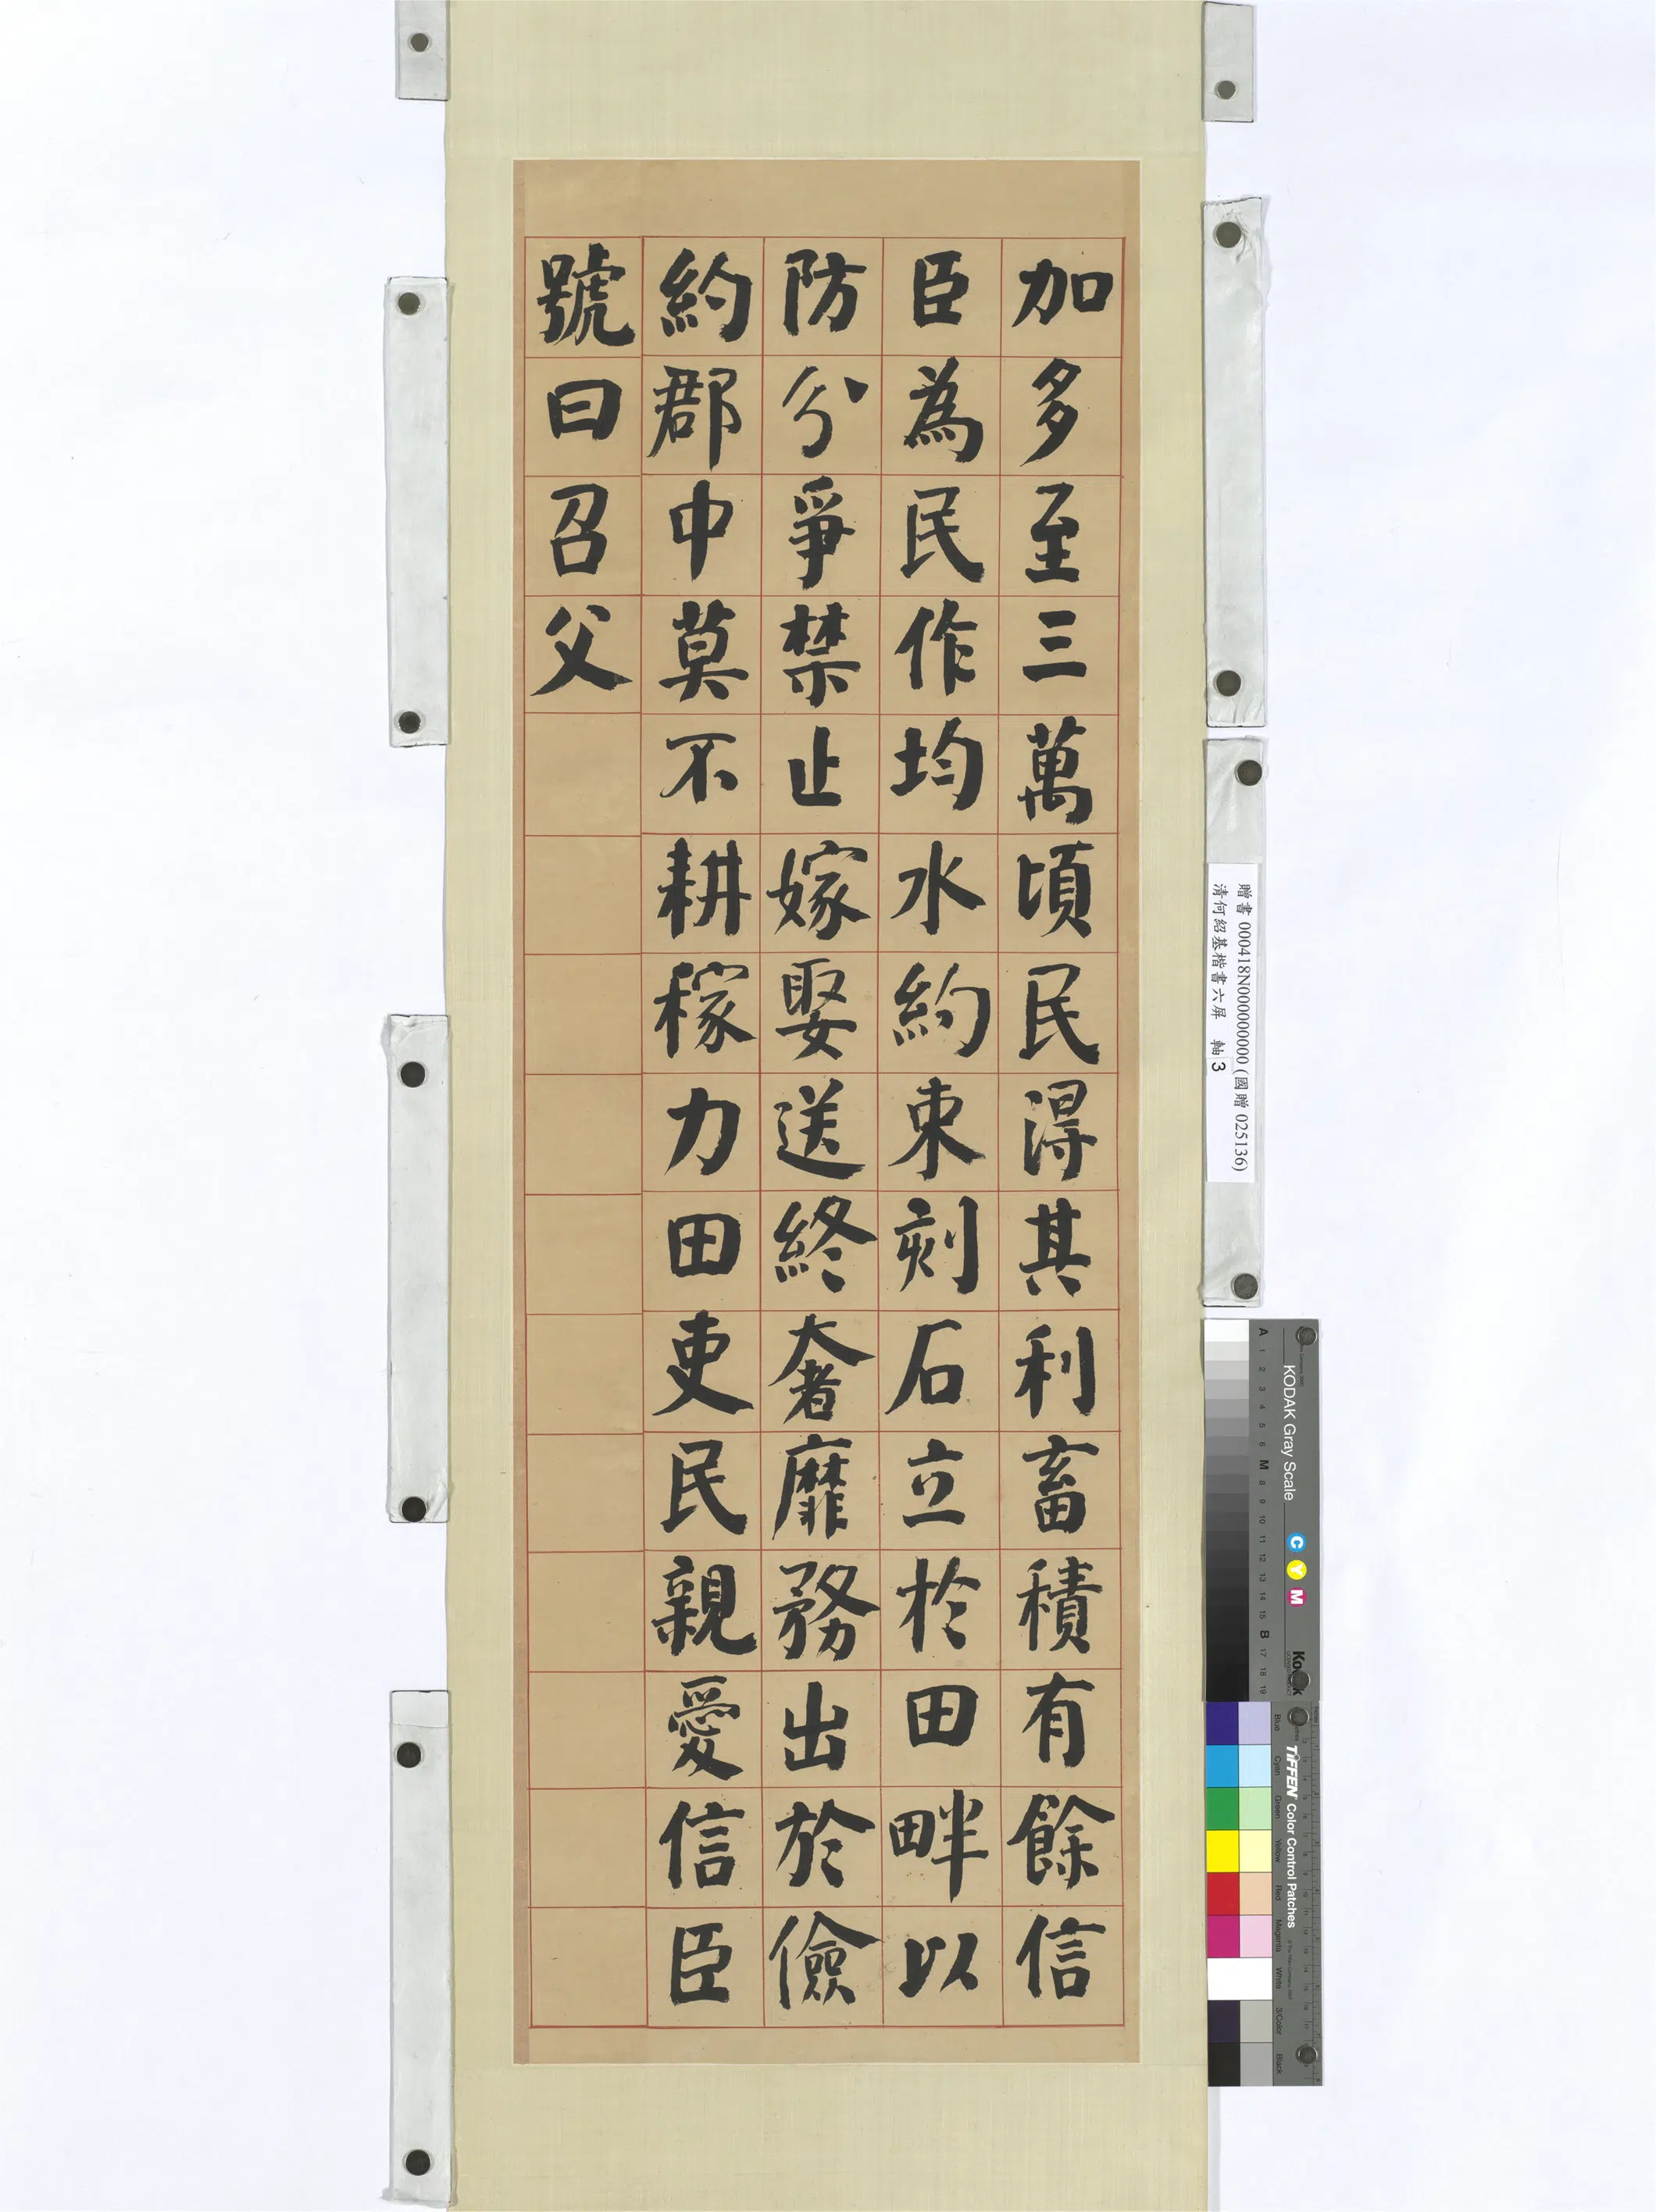 加多至三萬頃民得其利畜積有餘信
臣為民作均水約束刻石立於田畔以
防分爭禁止嫁娶送終奢靡務出於儉
約郡中莫不耕稼力田吏民親愛信臣
號曰召父
贈書 000418N000000000 (國贈 025136)
清何紹基楷書六屏 軸 3
KODAK Gray Scale
C Y M
Kodak
A 1 2 3 4 5 6 M 8 9 10 11 12 13 14 15 B 17 18 19
TIFFEN Color Control Patches
Blue Cyan Green Yellow Red Magenta White 3/Color Black